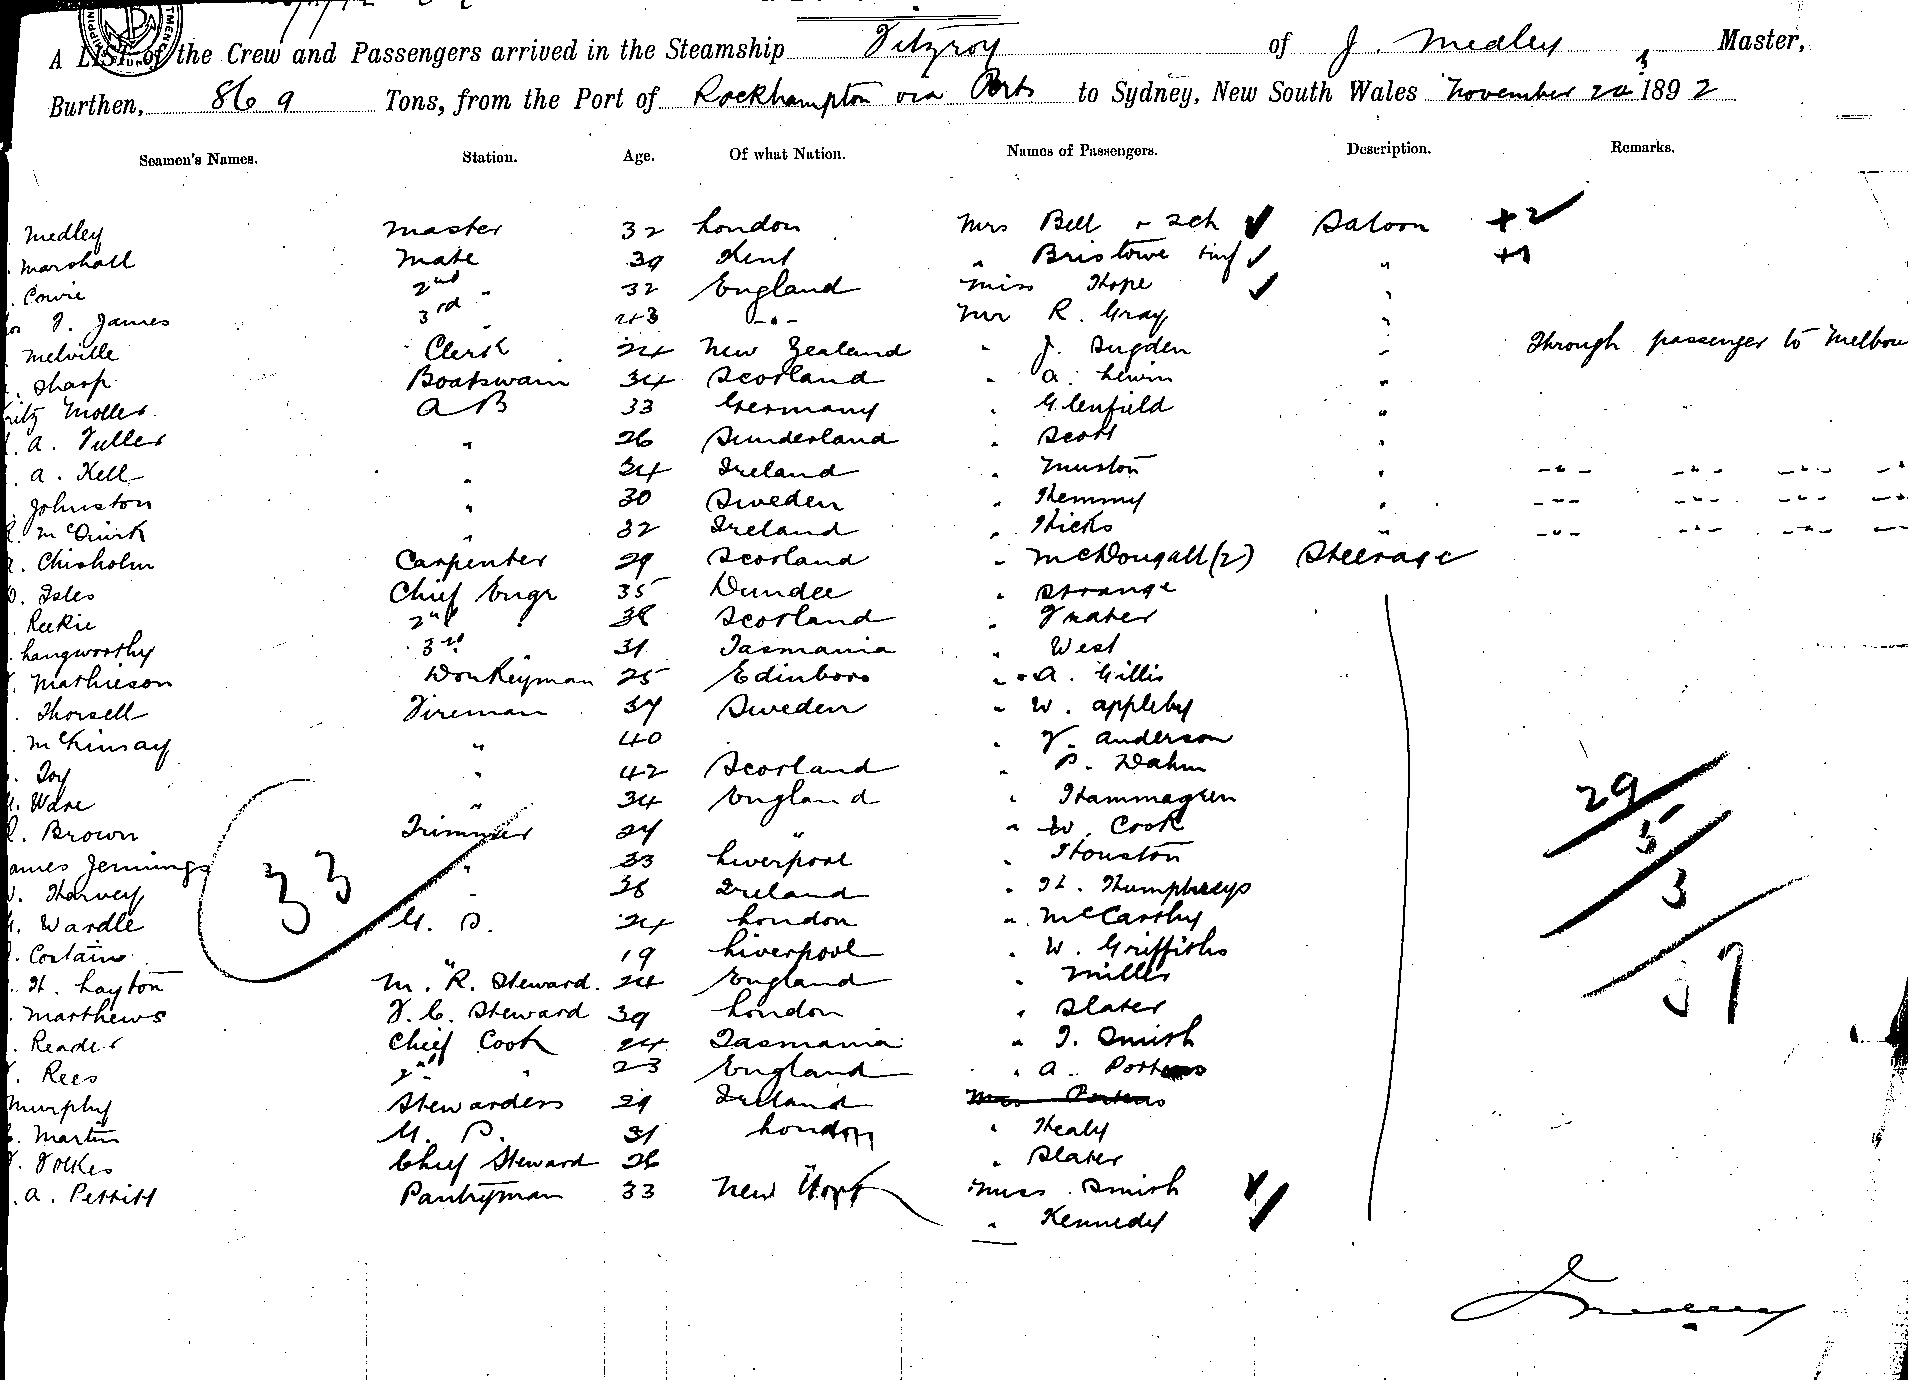 A LIST of the Crew and Passengers arrived in the Steamship Fitzroy of J. Medley, Master,
Burthen, 869 Tons, from the Port of Rockhampton via Ports to Sydney, New South Wales November 1892
Seamen's Names. Station. Age. Of what Nation. Names of Passengers. Description. Remarks.
Medley Master 32 London Mrs Bell + 2 ch Saloon +2
Marshall Mate 39 Kent " Bristowe " +1
Cowie 2nd " 32 England Miss Hope "
J. James 3rd " 43 -"- Mr R. Gray "
Melville Clerk 24 New Zealand " J. Sugden " Through passenger to Melbou
Sharp Boatswain 34 Scotland " A. Lewin "
Fritz Moller A B 33 Germany " Glenfield "
A. Fuller " 26 Sunderland " Scott "
A. Kell " 34 Ireland " Muston " -"- -"- -"-
Johnston " 30 Sweden " Hemmy " -"- -"- -"-
McQuirk " 32 Ireland " Hicks " -"- -"- -"-
Chisholm Carpenter 29 Scotland " McDougall (2) Steerage
Isles Chief Engr 35 Dundee " Strange
Reekie 2nd " 38 Scotland "
Langworthy 3rd " 31 Tasmania " West
Mathieson Donkeyman 25 Edinboro " A. Gillis
Thorsell Fireman 37 Sweden " W. Appleby
McKinsay " 40 " F. Anderson
Joy " 42 Scotland " P. Dahm
Ware " 34 England " Hammagren
29
Brown Trimmer 27 " " W. Cook
5
James Jennings " 33 Liverpool " Houston
33
Harvey " 38 Ireland " H. Humphreys
3
Wardle G. S. 24 London " McCarthy
Costain " 19 Liverpool " W. Griffiths
37
H. Layton M. R. Steward 24 England " Miller
Matthews F. C. Steward 39 London " Slater
Reader Chief Cook 24 Tasmania " J. Smith
Rees 2nd " 23 England " A. Porteus
Murphy Stewardess 29 Ireland Mrs Porteus
Martin G. S. 31 London " Healy
Folkes Chief Steward 26 " Slater
A. Pettitt Pantryman 33 New York Miss Smith
" Kennedy
J Medley